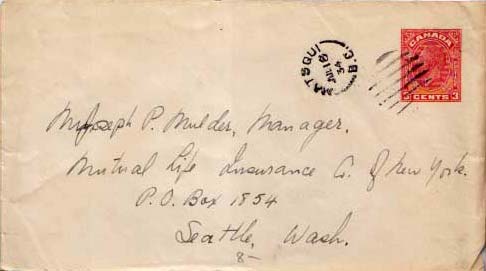 CANADA
3 CENTS 3
MATSQUI
B.C.
34
Mr Joseph P. Mulder, Manager.
Mutual Life Insurance Co. of New York.
P.O. Box 1854
Seattle, Wash.
8-